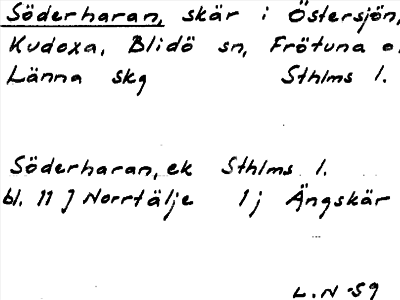 Söderharan, skär i Östersjön,
Kudoxa, Blidö sn, Frötuna o.
Länna skg Sthlms l.
Söderharan, ek Sthlms l.
bl. 11 J Norrtälje 1 j Ängskär
L.N -59